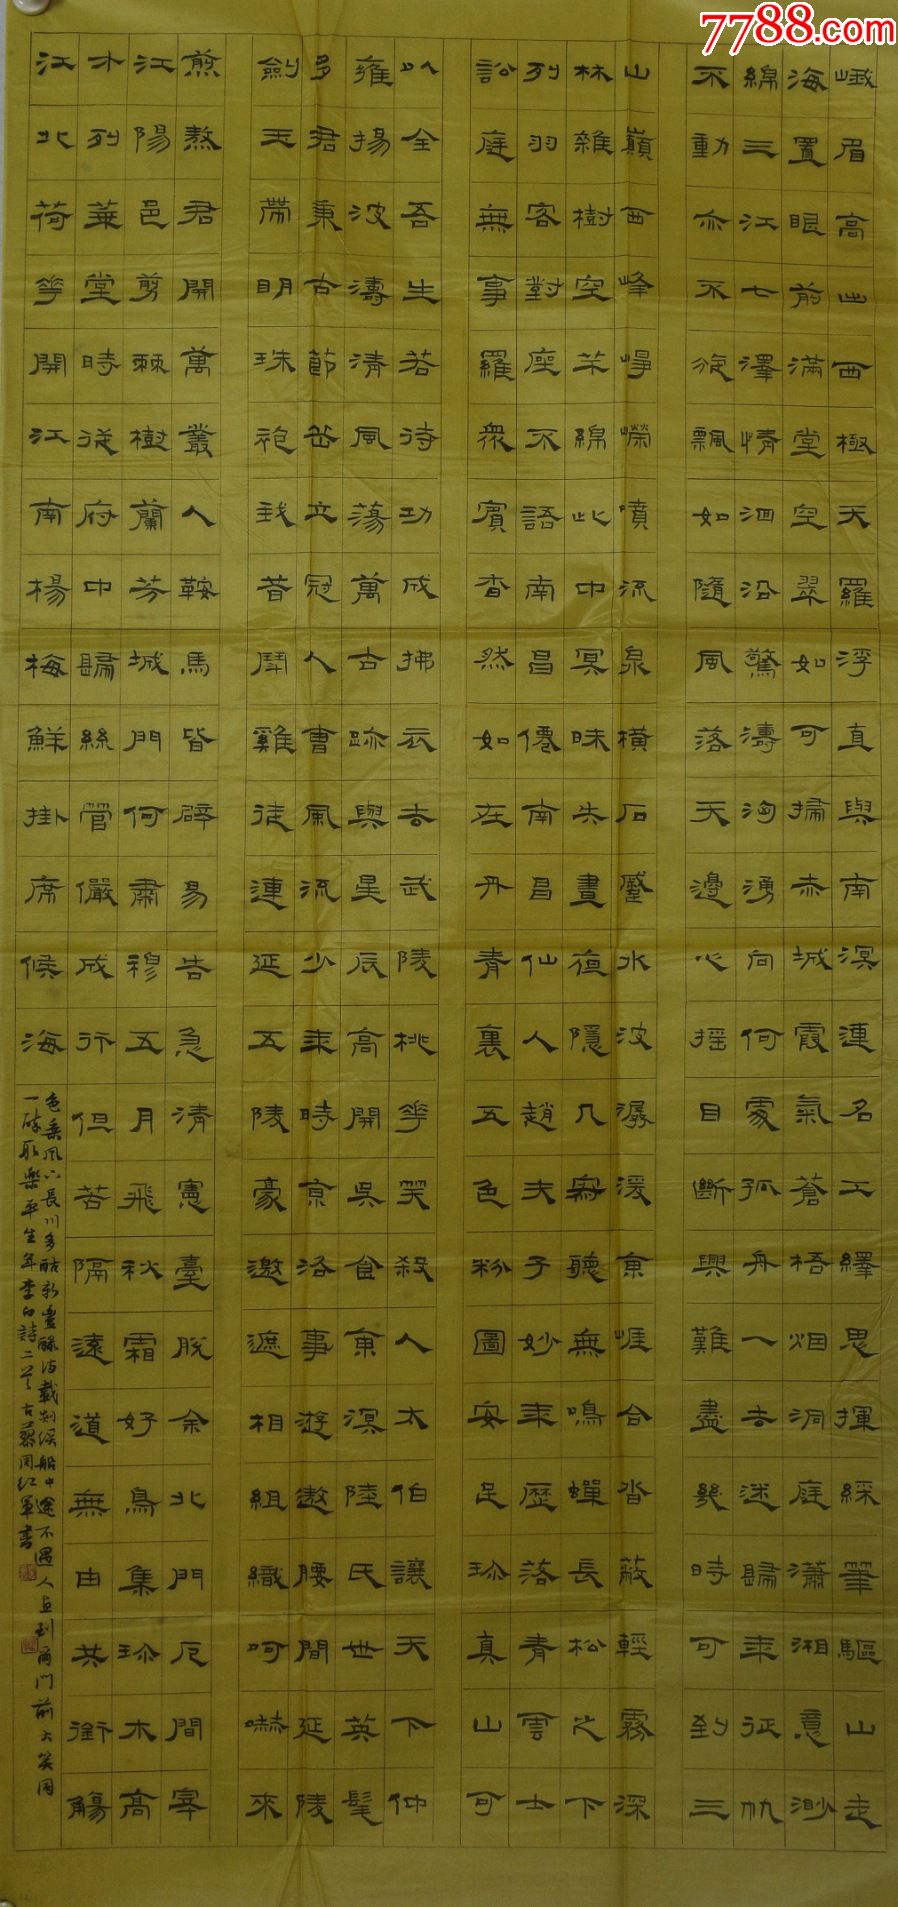 7788.com
峨眉高出西極天羅浮直與南溟連名工繹思揮綵筆驅山走
海置眼前滿堂空翠如可掃赤城霞氣蒼梧烟洞庭瀟湘意渺
綿三江七澤情洄沿驚濤洶湧向何處孤舟一去迷歸年征帆
不動亦不旋飄如隨風落天邊心搖目斷興難盡幾時可到三
山巔西峰崢嶸噴流泉橫石蹙水波潺湲東崖合沓蔽輕霧深
林雜樹空芊綿此中冥昧失晝夜隱几寂聽無鳴蟬長松之下
列羽客對座不語南昌僊南昌仙人趙夫子妙年歷落青雲士
訟庭無事羅眾賓杳然如在丹青裏五色粉圖安足珍真山可
以全吾生若待功成拂衣去武陵桃花笑殺人太伯讓天下仲
雍揚波濤清風蕩萬古跡與星辰高開吳食東溟陸氏世英髦
多君秉古節岳立冠人曹風流少年時京洛事遊遨腰間延陵
劍玉帶明珠袍我昔鬥雞徒連延五陵豪邀遮相組織呵嚇來
煎熬君開萬叢人鞍馬皆辟易告急清憲臺脫余北門厄間宰
江陽邑剪棘樹蘭芳城門何肅穆五月飛秋霜好鳥集珍木高
才列華堂時從府中歸絲管儼成行但苦隔遠道無由共銜觴
江北荷花開江南楊梅鮮掛席候海
色乘風下長川多酤新豐醁滿載剡溪船中途不遇人直到爾門前大笑同
一醉取樂平生年李白詩二首古蓼周紅軍書